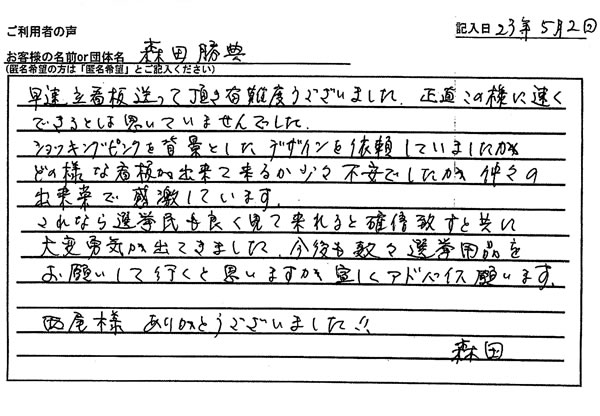 ご利用者の声
記入日 23年5月2日
お客様の名前or団体名 森田勝典
(匿名希望の方は「匿名希望」とご記入ください)
早速立看板送って頂き有難度うございました。正直この様に速く
できるとは思いていませんでした。
ショッキングピンクを背景としたデザインを依頼していましたが
どの様な看板が出来て来るか少々不安でしたが仲々の
出来栄で感激しています。
これなら選挙民も良く見て来れると確信致すと共に
大変勇気が出てきました。今後も数々選挙用品を
お願いして行くと思いますが宜しくアドバイス願います。
西尾様 ありがとうございました!!
森田